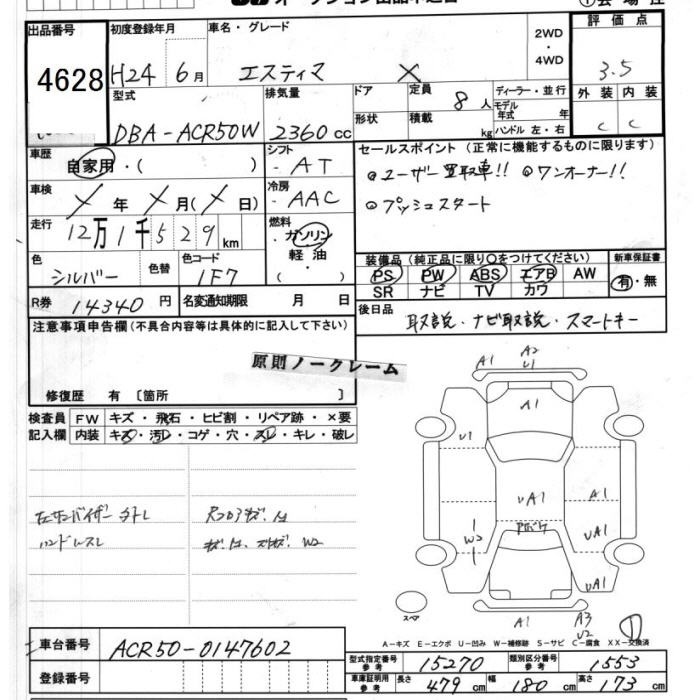 出品番号
4628
初度登録年月
H24 6月
車名・グレード
エスティマ X
2WD
・
4WD
評価点
3.5
外装 内装
C C
型式
DBA-ACR50W
排気量
2360cc
ドア
形状
定員
8人
積載
kg
ディーラー・並行
モデル年式 年
ハンドル 左・右
車歴
自家用・( )
シフト
AT
車検
X年X月(X日)
冷房
AAC
走行
12万1千529km
燃料
ガソリン
軽油
( )
色
シルバー
色替
色コード
1F7
R券
14340円
名変通知期限 月 日
セールスポイント(正常に機能するものに限ります)
◎ユーザー買取車!! ◎ワンオーナー!!
◎プッシュスタート
装備品(純正品に限り○をつけてください)
PS PW ABS エアB AW
SR ナビ TV カワ
新車保証書
有・無
後日品
取説・ナビ取説・スマートキー
注意事項申告欄(不具合内容等は具体的に記入して下さい)
原則ノークレーム
修復歴 有〔箇所 〕
検査員記入欄
FW キズ・飛石・ヒビ割・リペア跡・×要
内装 キズ・汚レ・コゲ・穴・スレ・キレ・破レ
左サンバイザー
ハンドルスレ
W2
A1
A2
U1
A1
A1
U1
UA1
A1
W2
UA1
UA1
A1
A3
U2
スペア
①
A-キズ E-エクボ U-凹み W-補修跡 S-サビ C-腐食 XX-交換済
車台番号
ACR50-0147602
登録番号
型式指定番号
参考
15270
類別区分番号
参考
1553
車庫証明用
参考
長さ 479cm
幅 180cm
高さ 173cm